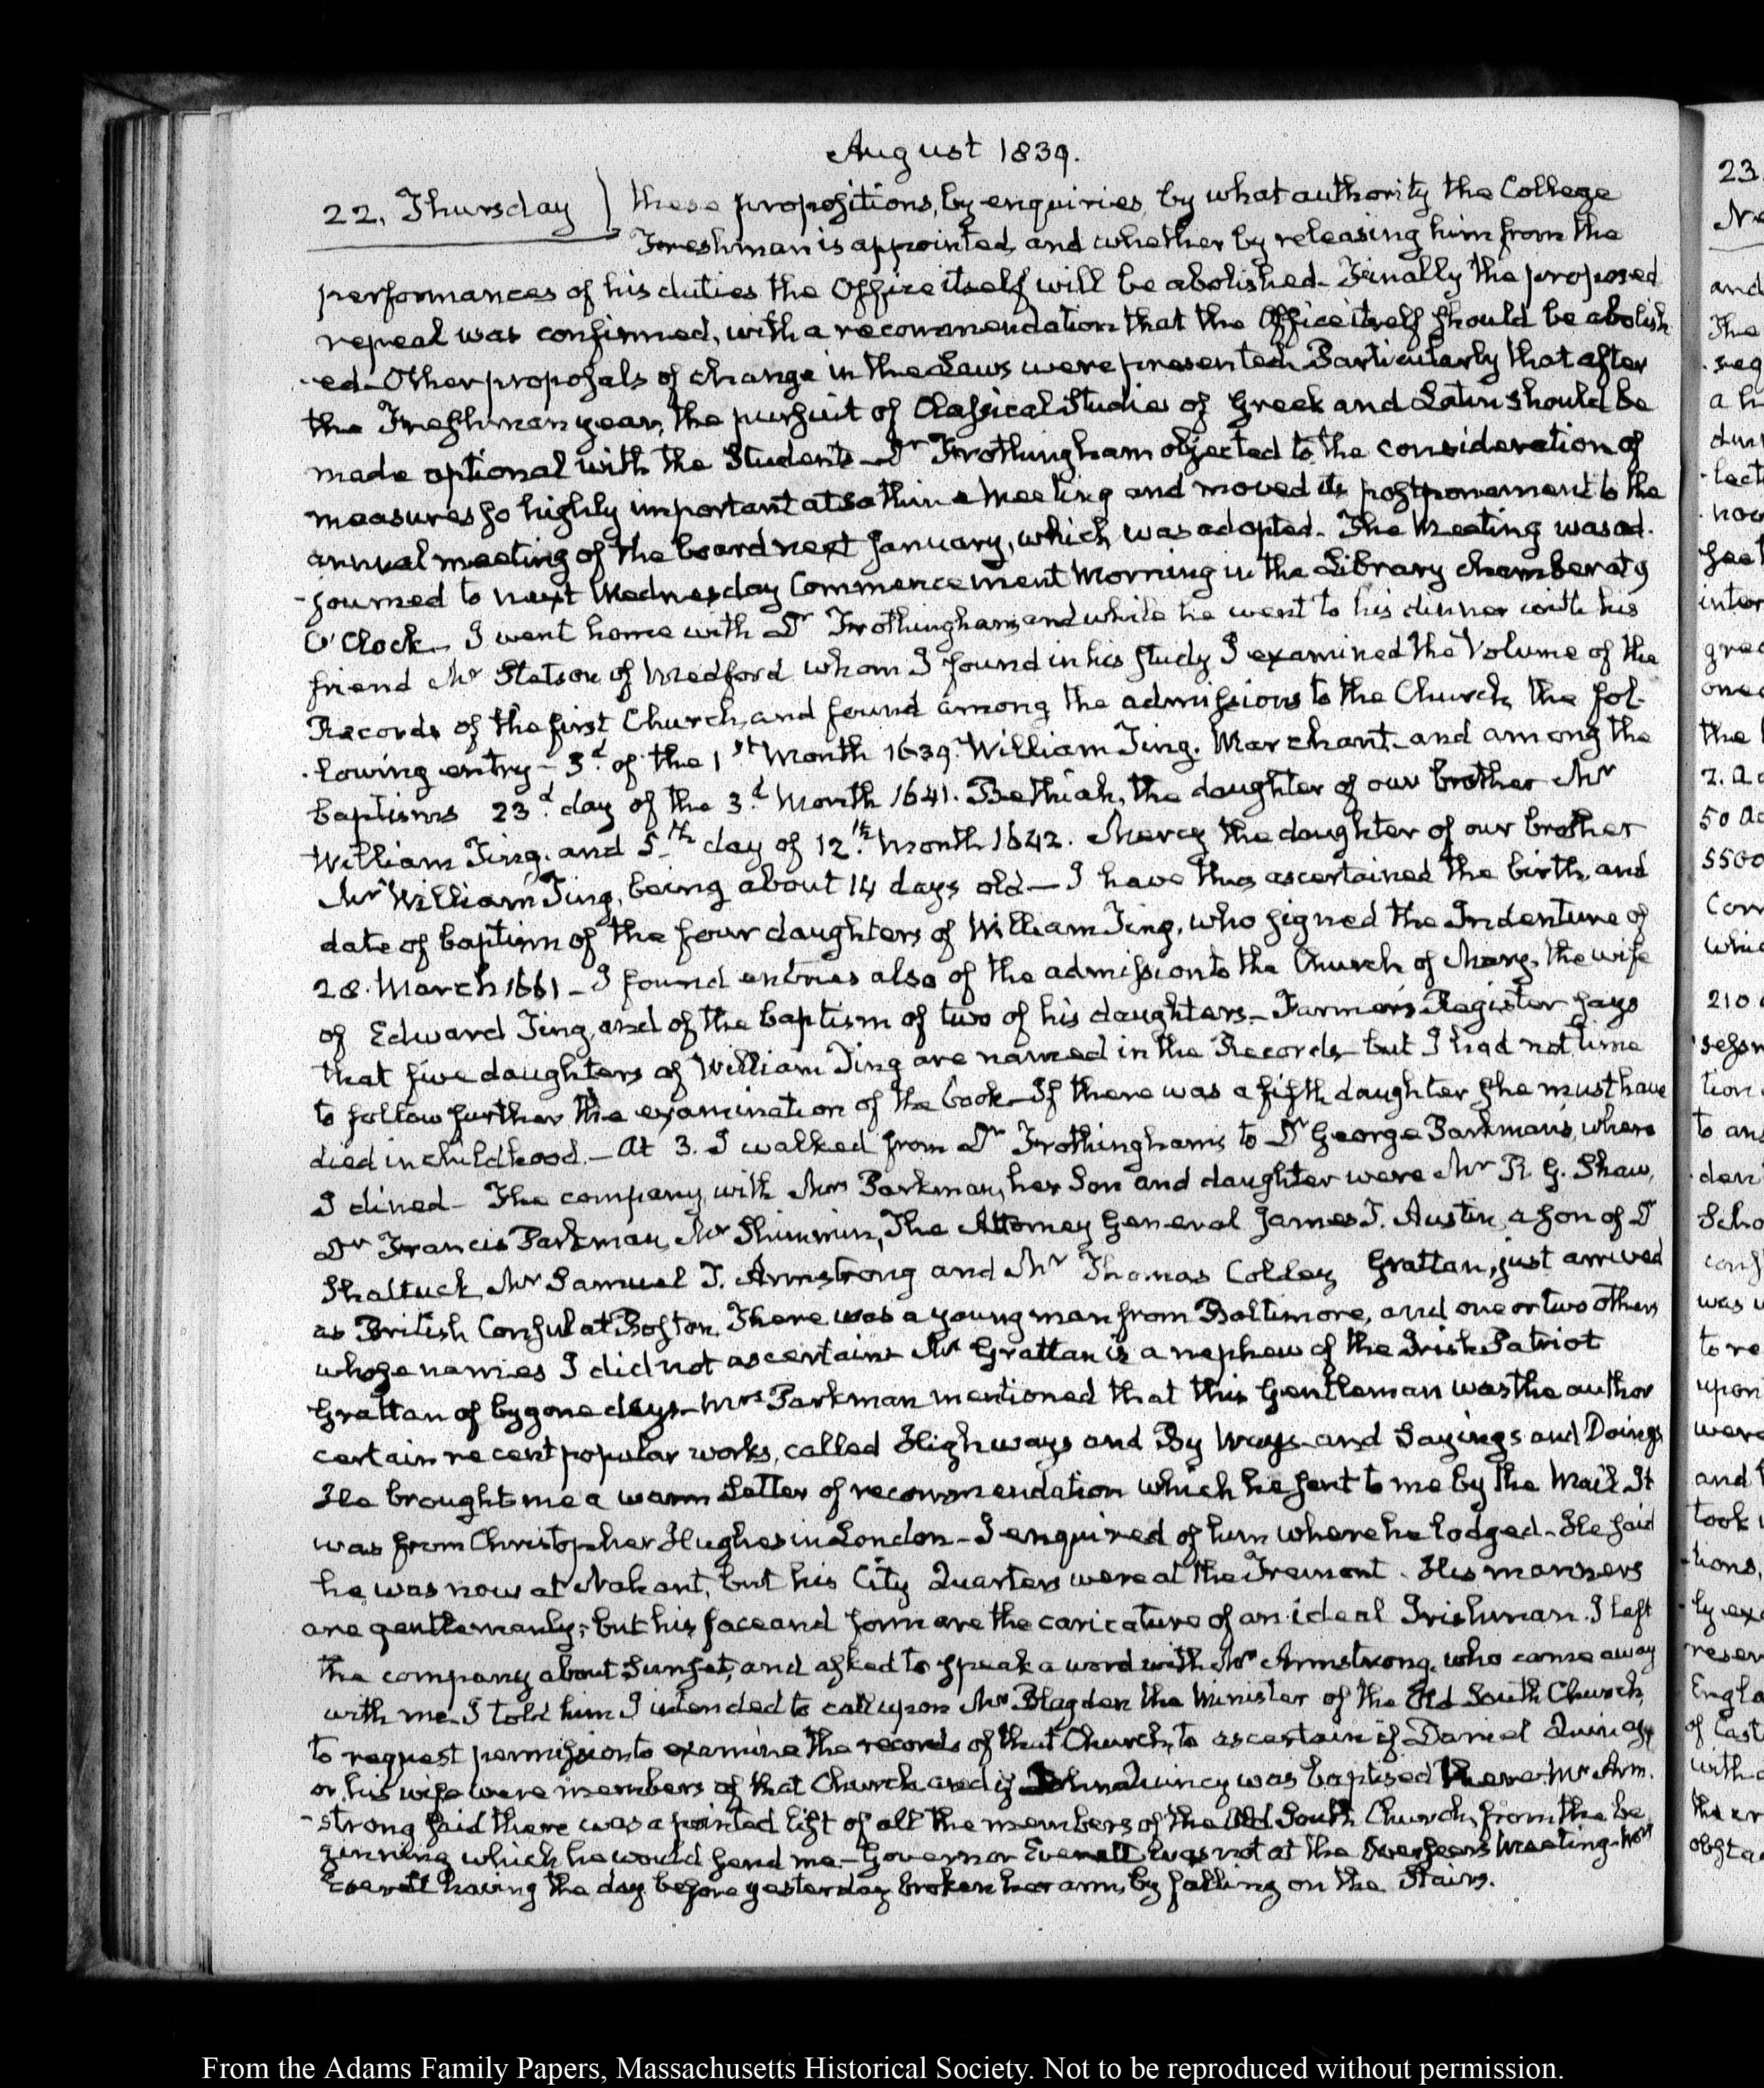 August 1839.
22. Thursday } these propositions, by enquiries, by what authority the College
Freshman is appointed, and whether by releasing him from the
performances of his duties the Office itself will be abolished. Finally the proposed
repeal was confirmed, with a recommendation that the Office itself should be abolish
-ed. Other proposals of change in the Laws were presented. Particularly that after
the Freshman year, the pursuit of Classical Studies of Greek and Latin should be
made optional with the Students. Dr Frothingham objected to the consideration of
measures so highly important at so thin a Meeting and moved its postponement to the
annual meeting of the board next January, which was adopted. The Meeting was ad-
-journed to next Wednesday Commencement Morning in the Library chamber at 9
O'Clock. I went home with Dr Frothingham, and while he went to his dinner with his
friend Mr Stetson of Medford whom I found in his study I examined the Volume of the
Records of the first Church, and found among the admissions to the Church, the fol-
-lowing entry— 3d of the 1st Month 1639. William Ting. Marchant—and among the
baptisms 23d day of the 3d Month 1641. Bethiah, the daughter of our brother Mr
William Ting. and 5th day of 12th Month 1642. Mercy the daughter of our brother
Mr William Ting, being about 14 days old—I have thus ascertained the birth, and
date of baptism of the four daughters of William Ting, who signed the Indenture of
28. March 1661—I found entries also of the admission to the Church of Mary, the wife
of Edward Ting, and of the baptism of two of his daughters. Farmer's Register says
that five daughters of William Ting are named in the Records but I had not time
to follow further the examination of the book—If there was a fifth daughter she must have
died in childhood.—At 3. I walked from Dr Frothingham's to Dr George Parkman's, where
I dined— The company, with Mrs Parkman, her Son and daughter were Mr R. G. Shaw,
Dr Francis Parkman, Mr Shimmin, The Attorney General James T. Austin, a son of Dr
Shattuck, Mr Samuel T. Armstrong and Mr Thomas Colley Grattan, just arrived
as British Consul at Boston. There was a young man from Baltimore, and one or two others
whose names I did not ascertain. Mr Grattan is a nephew of the Irish Patriot
Grattan of bygone days—Mrs Parkman mentioned that this Gentleman was the author
certain recent popular works, called Highways and By Ways—and Sayings and Doings
He brought me a warm Letter of recommendation which he sent to me by the Mail. It
was from Christopher Hughes in London—I enquired of him where he lodged—He said
he was now at Nahant, but his City Quarters were at the Tremont. His manners
are gentlemanly; but his face and form are the caricature of an ideal Irishman. I left
the company about Sunset, and asked to speak a word with Mr Armstrong, who came away
with me. I told him I intended to call upon Mr Blagden the Minister of the Old South Church,
to request permission to examine the records of that Church, to ascertain if Daniel Quincy
or his wife were members of that Church and if John Quincy was baptised there. Mr Arm-
-strong said there was a printed list of all the members of the Old South Church, from the be
ginning which he would send me—Governor Everett was not at the Overseers Meeting—Mrs
Everett having the day before yesterday broken her arm, by falling on the Stairs.
From the Adams Family Papers, Massachusetts Historical Society. Not to be reproduced without permission.